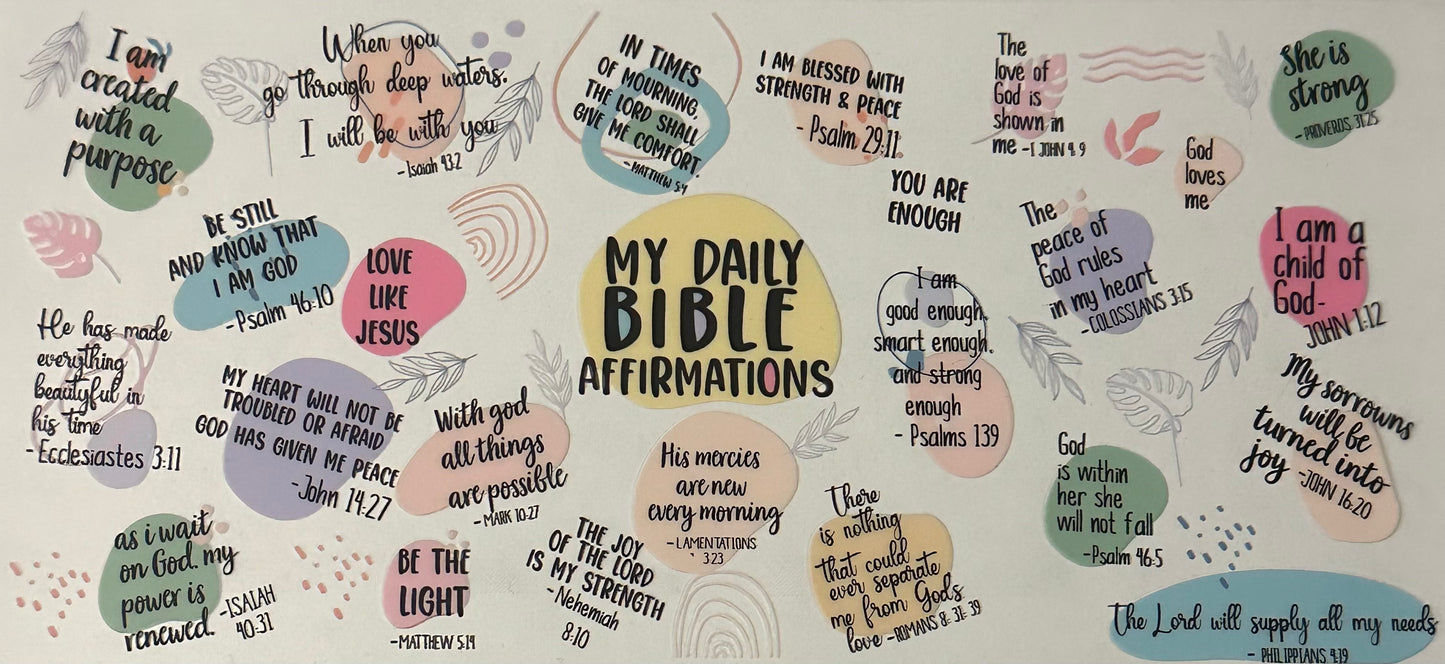 I am
created
with a
purpose
When you
go through deep waters.
I will be with you
- Isaiah 43:2
IN TIMES
OF MOURNING,
THE LORD SHALL
GIVE ME COMFORT.
- MATTHEW 5:4
I AM BLESSED WITH
STRENGTH & PEACE
- Psalm 29:11
The
love of
God is
shown in
me -1 JOHN 4:9
She is
strong
- PROVERBS 31:25
God
loves
me
YOU ARE
ENOUGH
BE STILL
AND KNOW THAT
I AM GOD
- Psalm 46:10
LOVE
LIKE
JESUS
MY DAILY
BIBLE
AFFIRMATIONS
I am
good enough,
smart enough.
and strong
enough
- Psalms 139
The
peace of
God rules
in my heart
- COLOSSIANS 3:15
I am a
child of
God-
JOHN 1:12
He has made
everything
beautyful in
his time
- Ecclesiastes 3:11
MY HEART WILL NOT BE
TROUBLED OR AFRAID
GOD HAS GIVEN ME PEACE
-John 14:27
With god
all things
are possible
- MARK 10:27
His mercies
are new
every morning
- LAMENTATIONS
3:23
There
is nothing
that could
ever separate
me from Gods
love - ROMANS 8: 31-39
God
is within
her she
will not fall
-Psalm 46:5
My sorrowns
will be
turned into
joy -JOHN 16:20
as i wait
on God. my
power is
renewed. -ISAIAH
40:31
BE THE
LIGHT
-MATTHEW 5:14
THE JOY
OF THE LORD
IS MY STRENGTH
- Nehemiah
8:10
The Lord will supply all my needs
- PHILIPPIANS 4:19